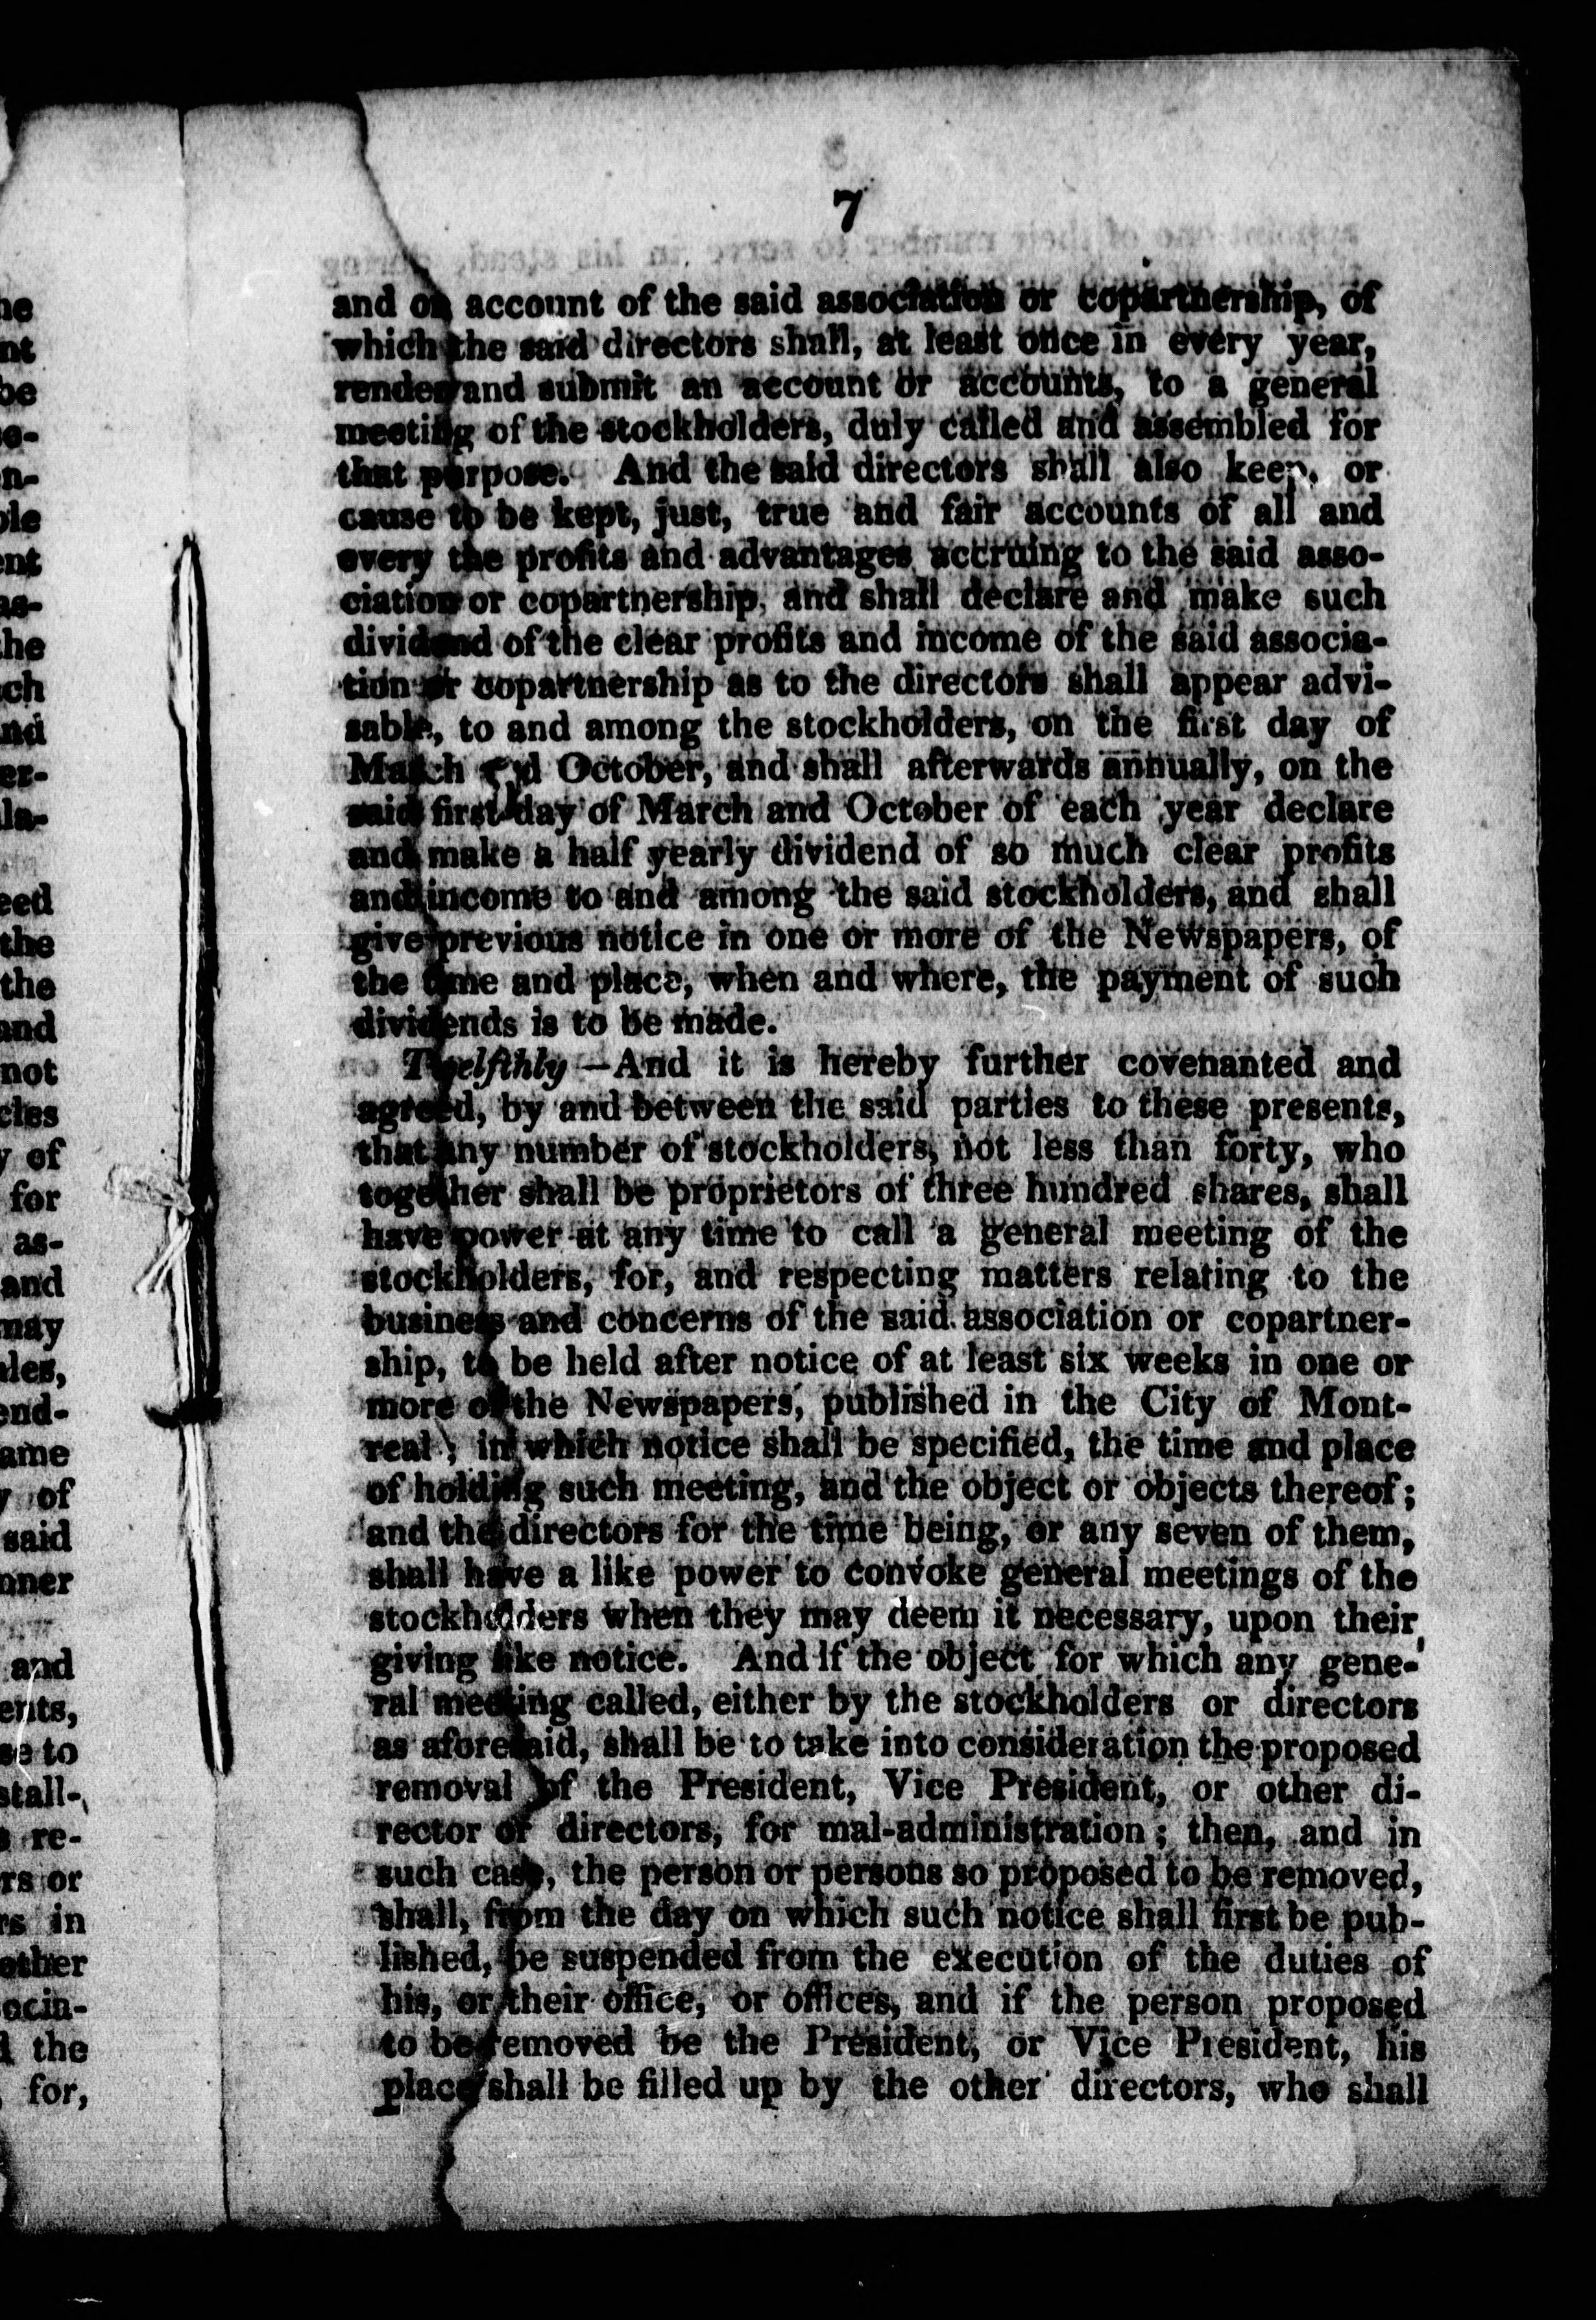 7
and on account of the said association or copartnership, of
which the said directors shall, at least once in every year,
render and submit an account or accounts, to a general
meeting of the stockholders, duly called and assembled for
that purpose. And the said directors shall also keep, or
cause to be kept, just, true and fair accounts of all and
every the profits and advantages accruing to the said asso-
ciation or copartnership, and shall declare and make such
dividend of the clear profits and income of the said associa-
tion or copartnership as to the directors shall appear advi-
sable, to and among the stockholders, on the first day of
March and October, and shall afterwards annually, on the
said first day of March and October of each year declare
and make a half yearly dividend of so much clear profits
and income to and among the said stockholders, and shall
give previous notice in one or more of the Newspapers, of
the time and place, when and where, the payment of such
dividends is to be made.
Twelfthly—And it is hereby further covenanted and
agreed, by and between the said parties to these presents,
that any number of stockholders, not less than forty, who
together shall be proprietors of three hundred shares, shall
have power at any time to call a general meeting of the
stockholders, for, and respecting matters relating to the
business and concerns of the said association or copartner-
ship, to be held after notice of at least six weeks in one or
more of the Newspapers, published in the City of Mont-
real; in which notice shall be specified, the time and place
of holding such meeting, and the object or objects thereof;
and the directors for the time being, or any seven of them,
shall have a like power to convoke general meetings of the
stockholders when they may deem it necessary, upon their
giving like notice. And if the object for which any gene-
ral meeting called, either by the stockholders or directors
as aforesaid, shall be to take into consideration the proposed
removal of the President, Vice President, or other di-
rector or directors, for mal-administration; then, and in
such case, the person or persons so proposed to be removed,
shall, from the day on which such notice shall first be pub-
lished, be suspended from the execution of the duties of
his, or their office, or offices, and if the person proposed
to be removed be the President, or Vice President, his
place shall be filled up by the other directors, who shall